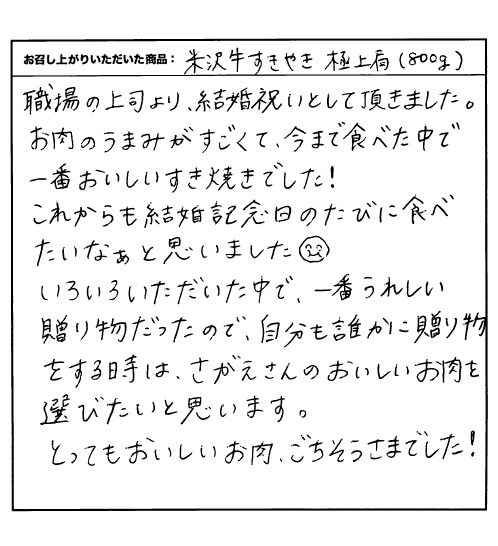 お召し上がりいただいた商品： 米沢牛すきやき 極上肩(800g)
職場の上司より、結婚祝いとして頂きました。
お肉のうまみがすごくて、今まで食べた中で
一番おいしいすき焼きでした!
これからも結婚記念日のたびに食べ
たいなぁと思いました
いろいろいただいた中で、一番うれしい
贈り物だったので、自分も誰かに贈り物
をする時は、さがえさんのおいしいお肉を
選びたいと思います。
とってもおいしいお肉、ごちそうさまでした!